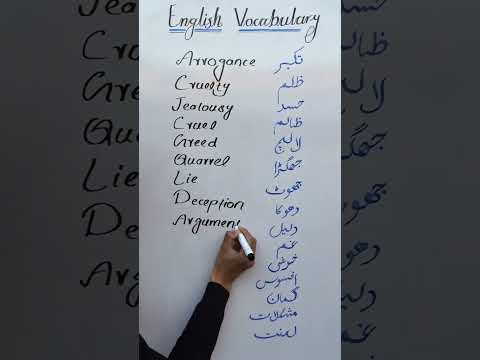 English Vocabulary
Arrogance تکبر
Cruelty ظلم
Jealousy حسد
Cruel ظالم
Greed لالچ
Quarrel جھگڑا
Lie جھوٹ
Deception دھوکا
Argument دلیل
غم
خوشی
افسوس
گمان
مشکلات
لعنت